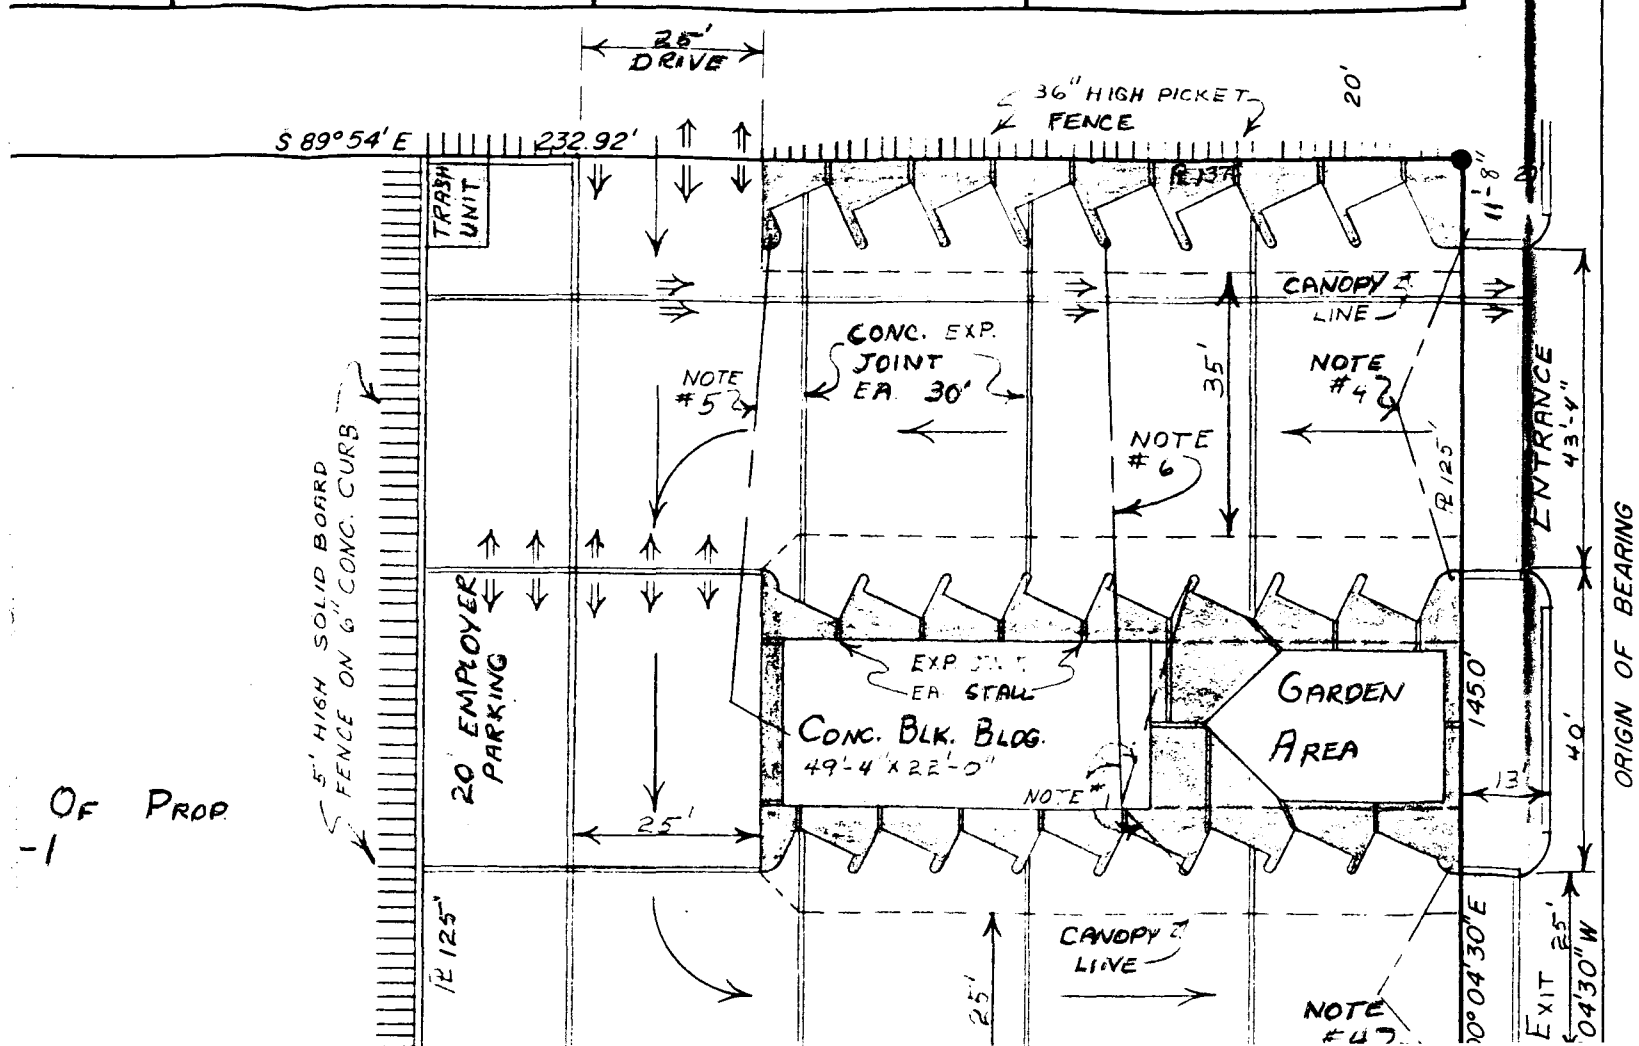 25'
DRIVE
36" HIGH PICKET
FENCE
20'
S 89° 54' E
232.92'
TRASH
UNIT
11'-8"
CANOPY
LINE
CONC. EXP.
JOINT
EA. 30'
35'
NOTE
#5
NOTE
#4
NOTE
#6
ENTRANCE
43'-4"
℄ 125'
5' HIGH SOLID BOARD
FENCE ON 6" CONC. CURB
20' EMPLOYER
PARKING
EXP.
EA. STALL
CONC. BLK. BLDG.
49'-4" X 22'-0"
GARDEN
AREA
145.0'
40'
13'
ORIGIN OF BEARING
NOTE #1
25'
OF PROP
-1
125'
CANOPY
LINE
25'
NOTE
#4
0°04'30"E
EXIT 25'
04'30"W